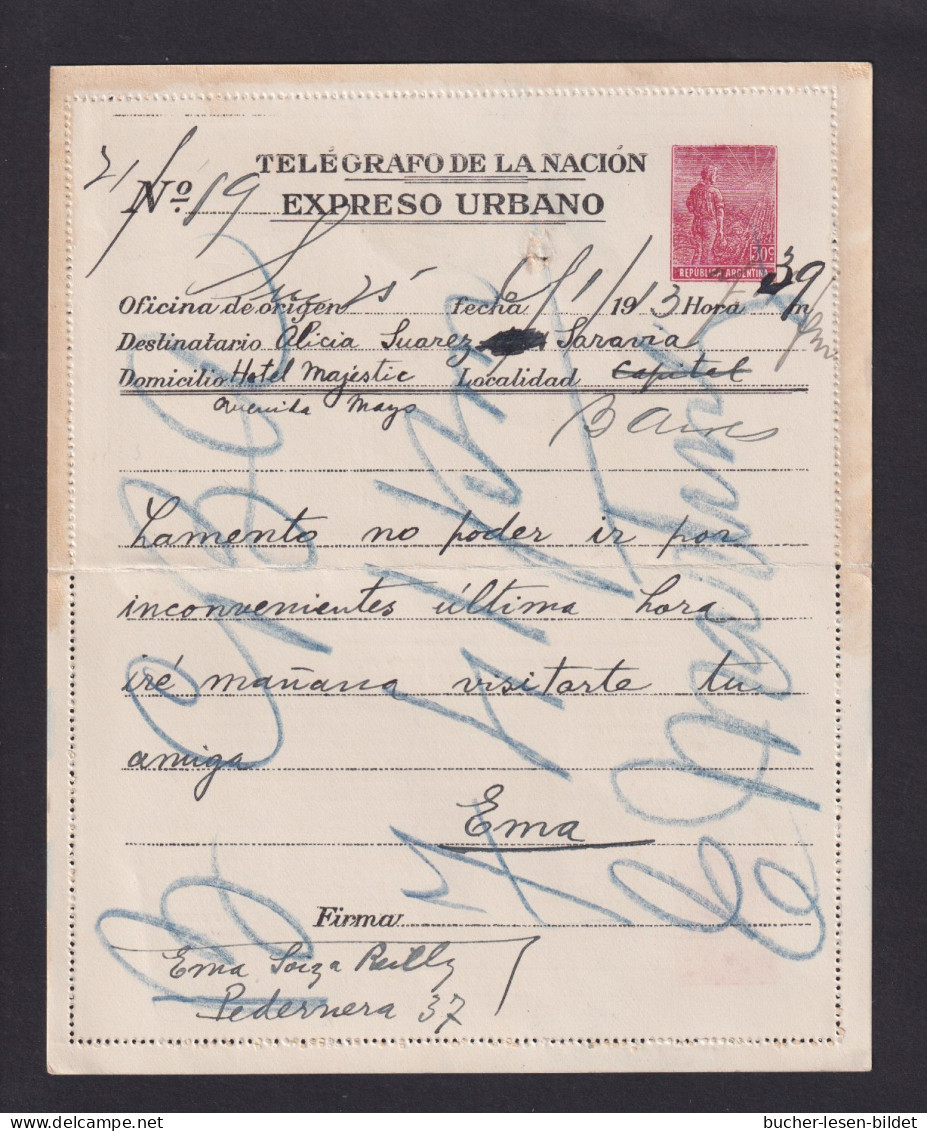 TELÉGRAFO DE LA NACIÓN
21/
Nº 89
EXPRESO URBANO
30c
REPÚBLICA ARGENTINA
Oficina de origen 25 fecha 1/1913 Hora 39 m
Destinatario Alicia Suarez Saravia
Domicilio Hotel Majestic Localidad Capital
Avenida Mayo
B Aires
Lamento no poder ir por
inconvenientes última hora
iré mañana visitarte tu
amiga
Ema
Firma
Ema Soiza Reilly
Pedernera 37
bucher-lesen-bildet